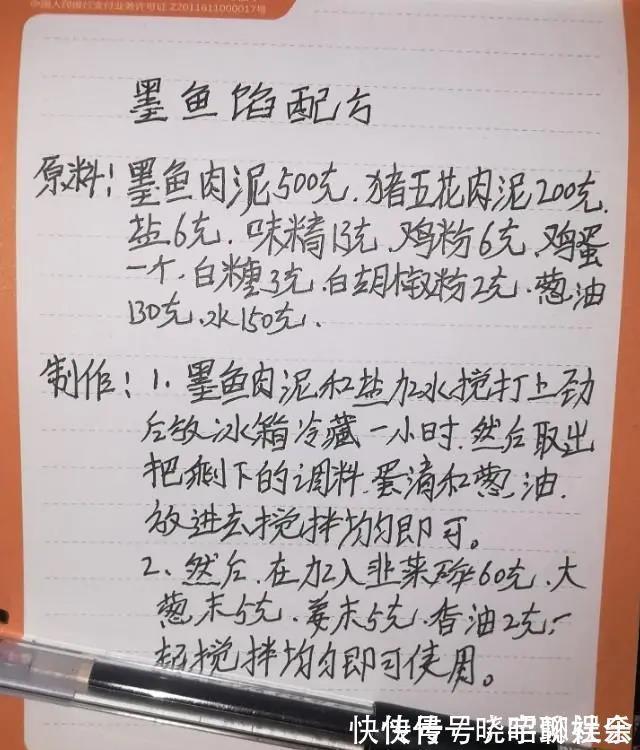 中国人民银行支付业务许可证 Z2011611000017号
墨鱼馅配方
原料：墨鱼肉泥500克、猪五花肉泥200克、
盐6克、味精13克、鸡粉6克、鸡蛋
一个、白糖3克、白胡椒粉2克、葱油
130克、水150克、
制作：1、墨鱼肉泥和盐加水搅打上劲
后放冰箱冷藏一小时、然后取出
把剩下的调料、蛋清和葱油、
放进去搅拌均匀即可。
2、然后、在加入韭菜碎60克、大
葱末5克、姜末5克、香油2克、一
起搅拌均匀即可使用。